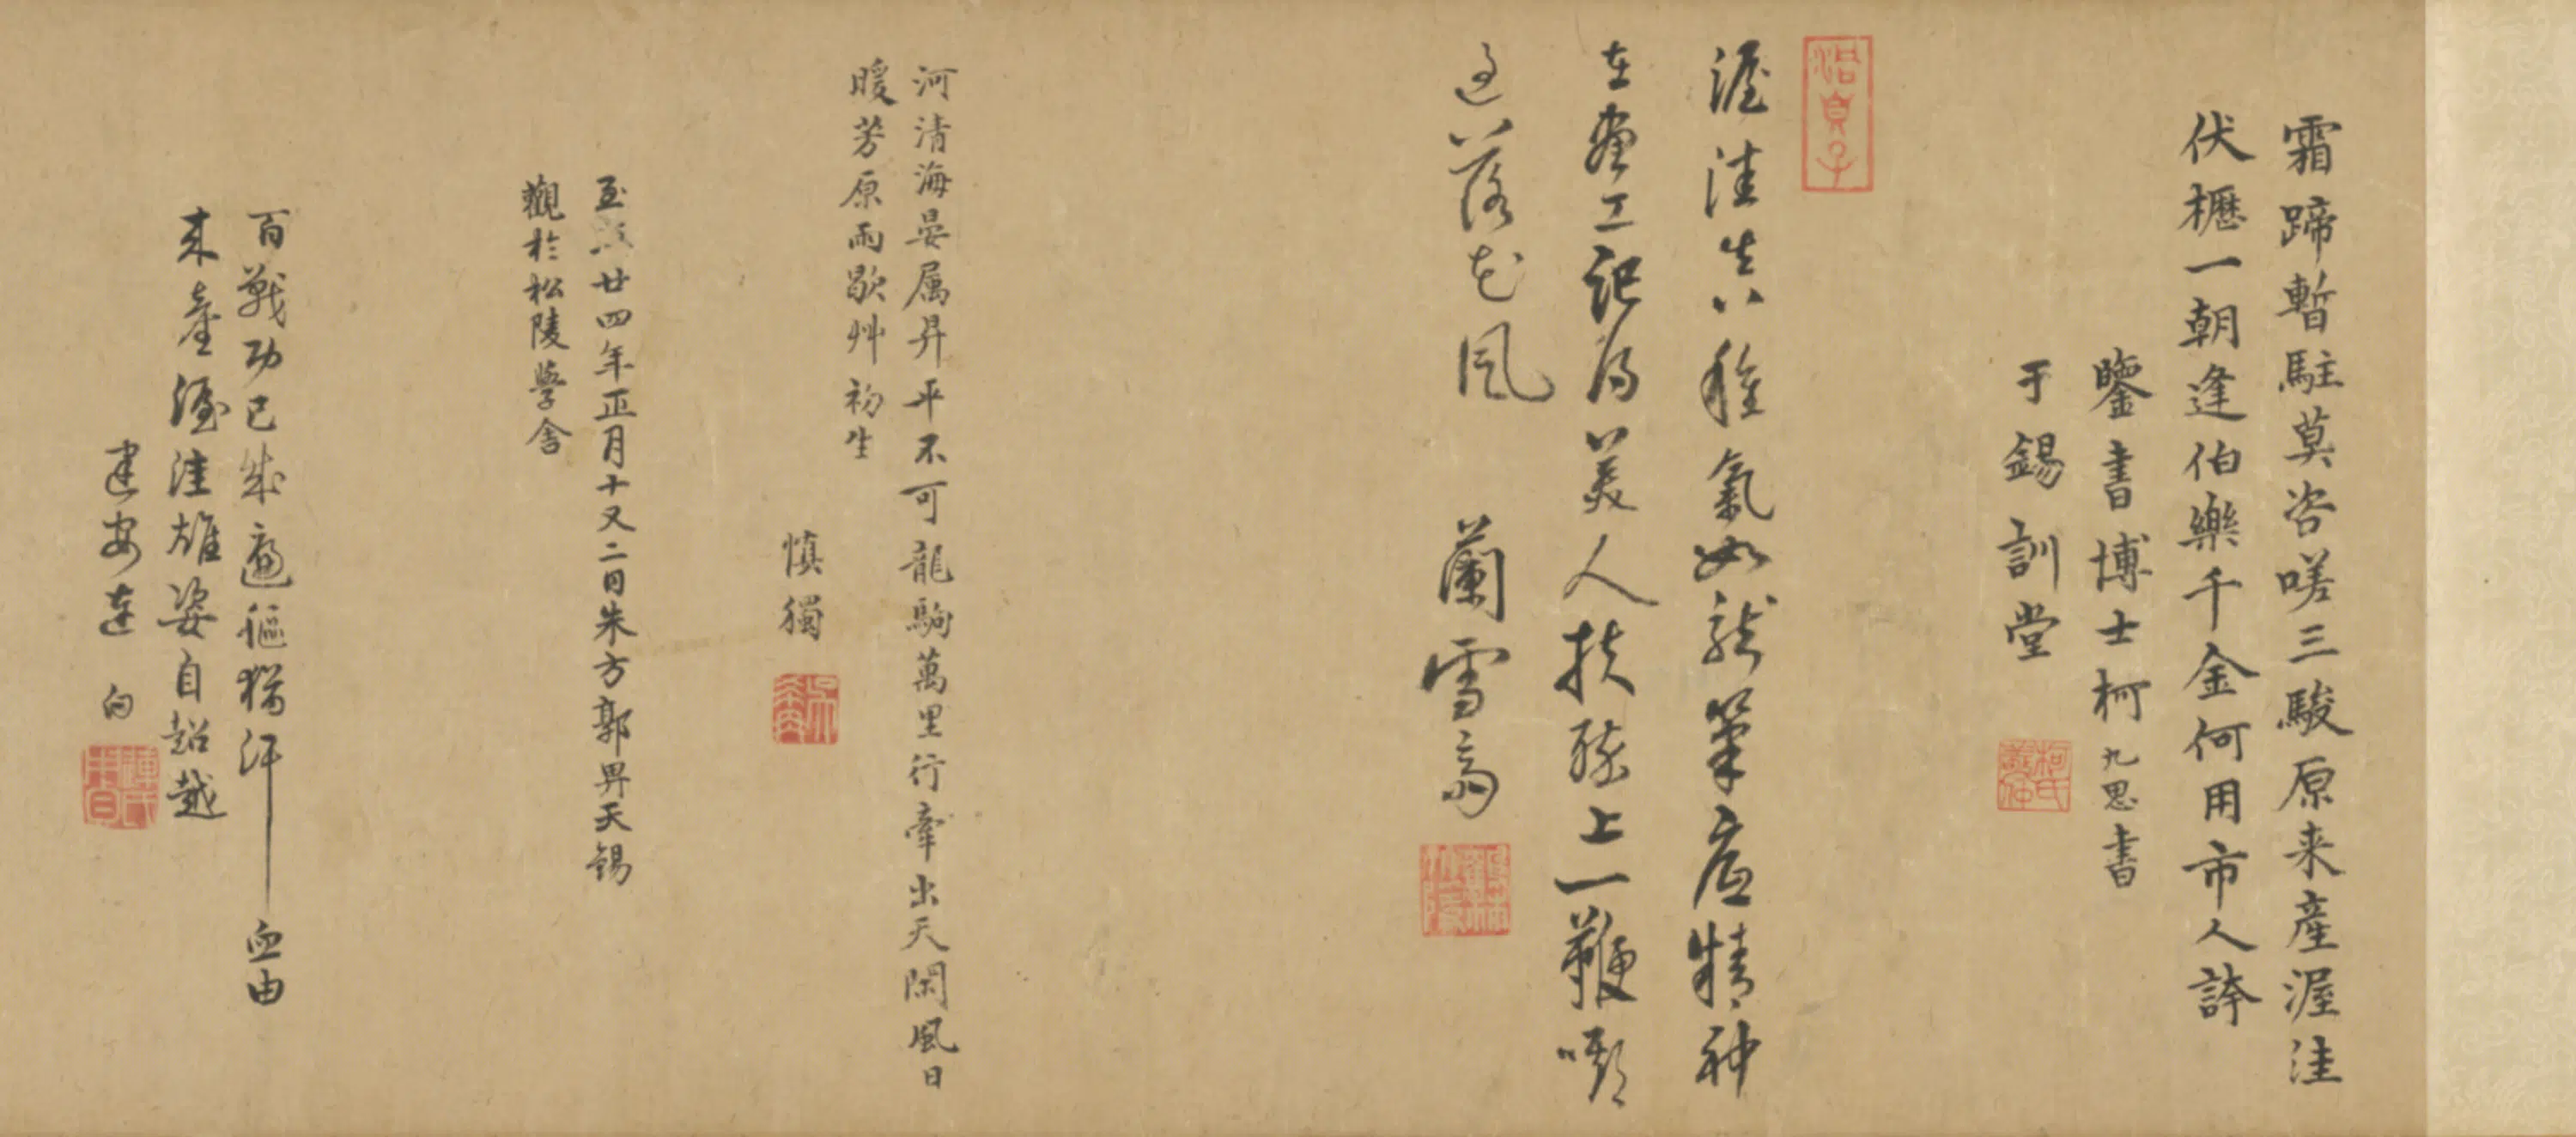 霜蹄暫駐莫咨嗟三駿原来產渥洼
伏櫪一朝逢伯樂千金何用市人誇
鑒書博士柯九思書
于錫訓堂
柯氏敬仲
渥洼生種氣如龍筆底精神
在畫工記得美人扶醉上一鞭嘶
過落花風
蘭雪翁
河清海晏属昇平不可龍駒萬里行牽出天閑風日
暖芳原雨歇艸初生
慎獨
至廿四年正月十又二日朱方郭畀天錫
觀於松陵學舍
百戰功已成適怄猶汗血由
来產渥洼雄姿自超越
建安連白